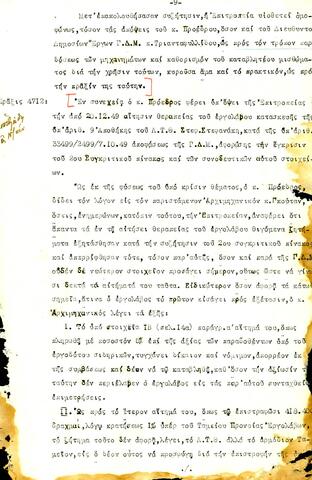 -9-
Μετ'επακολουθήσασαν συζήτησιν, ἡ Ἐπιτροπεία υἱοθετεῖ ὁμο-
φώνως, τόσον τὰς ἀπόψεις τοῦ κ. Προέδρου, ὅσον καὶ τοῦ Διευθυντοῦ
Δημοσίων Ἔργων Γ.Δ.Μ. κ. Τριανταφυλλίδου, ὡς πρὸς τὸν τρόπον παρα-
δόσεως τῶν μηχανημάτων καὶ καθορισμοῦ τοῦ καταβλητέου μισθώμα-
τος διὰ τὴν χρῆσιν τούτων, καθὼς καὶ τὸ πρακτικόν, ὡς πρὸς
τὴν πρᾶξιν της ταύτην.
Πρᾶξις 4712: Ἐν συνεχείᾳ ὁ κ. Πρόεδρος φέρει ὑπ'ὄψει τῆς Ἐπιτροπείας
τὴν ἀπὸ 20.12.49 αἴτησιν θεραπείας τοῦ ἐργολάβου κατασκευῆς τῆς
ὑπ'ἀριθ. 9 Ἀποθήκης τοῦ Λ.Τ.Θ. Στεφ. Στεφανάκη, κατὰ τῆς ὑπ'ἀριθ.
33499/2499/7.10.49 ἀποφάσεως τῆς Γ.Δ.Μ., ἀφορώσης τὴν ἔγκρισιν
τοῦ 2ου Συγκριτικοῦ πίνακος καὶ τῶν συνοδευτικῶν αὐτοῦ στοιχεί-
ων.
Ὡς ἐκ τῆς φύσεως τοῦ ὑπὸ κρίσιν θέματος, ὁ κ. Πρόεδρος,
δίδει τὸν λόγον εἰς τὸν παριστάμενον Ἀρχιμηχανικὸν κ. Γκούταν,
ὅστις, ἐνημερώνων, κατόπιν τούτου, τὴν Ἐπιτροπείαν, ἀναφέρει ὅτι
ἅπαντα τὰ ἐν τῇ αἰτήσει θεραπείας τοῦ ἐργολάβου θιγόμενα ζητή-
ματα ἐξητάσθησαν κατὰ τὴν συζήτησιν τοῦ 2ου συγκριτικοῦ πίνακος
καὶ ἀπερρίφθησαν τότε, τόσον παρ'αὐτῆς, ὅσον καὶ παρὰ τῆς Γ.Δ.Μ.
οὐδὲν δὲ νεώτερον στοιχεῖον προσάγει σήμερον, οὕτως ὥστε νὰ γίνω-
σι δεκτὰ τὰ αἰτήματά του ταῦτα. Εἰδικώτερον ὅσον ἀφορᾷ τὰ κάτω
σημεῖα, ἅτινα ὁ ἐργολάβος τὸ πρῶτον εἰσάγει πρὸς ἐξέτασιν, ὁ κ.
Ἀρχιμηχανικὸς λέγει τὰ ἑξῆς:
1. Τὸ ὑπὸ στοιχεῖα ΙΒ (σελ.14α) παράγρ.α'αἴτημά του, ὅπως
πληρωθῇ μὲ ποσοστὸν ἐπὶ τῆς ἀξίας τῶν παραδοθέντων ὑπὸ τοῦ
ἐργοδότου σιδηρῶν, τυγχάνει δίκαιον καὶ νόμιμον, ἀπορρέον ἐκ
τῆς συμβάσεως καὶ δέον νὰ τῷ καταβληθῇ, καθ'ὅσον τὴν ἀξίωσίν
ταύτην δὲν περιέλαβεν ὁ ἐργολάβος εἰς τὰς παρ'αὐτοῦ συνταχθείσας
ἐπιμετρήσεις.
2. Ὡς πρὸς τὸ ἕτερον αἴτημά του, ὅπως τῷ ἐπιστραφῶσι 410.400
δραχμαί, λόγῳ κρατήσεως ὑπὲρ τοῦ Ταμείου Προνοίας Ἐργολάβων,
τὸ ζήτημα τοῦτο δὲν ἀφορᾷ, λέγει, τὸ Λ.Τ.Θ. ἀλλὰ τὸ ἁρμόδιον Τα-
μεῖον, εἰς ὃ δέον οὗτος νὰ προσφύγῃ διὰ τὴν ἐπιστροφὴν τῆς
./.